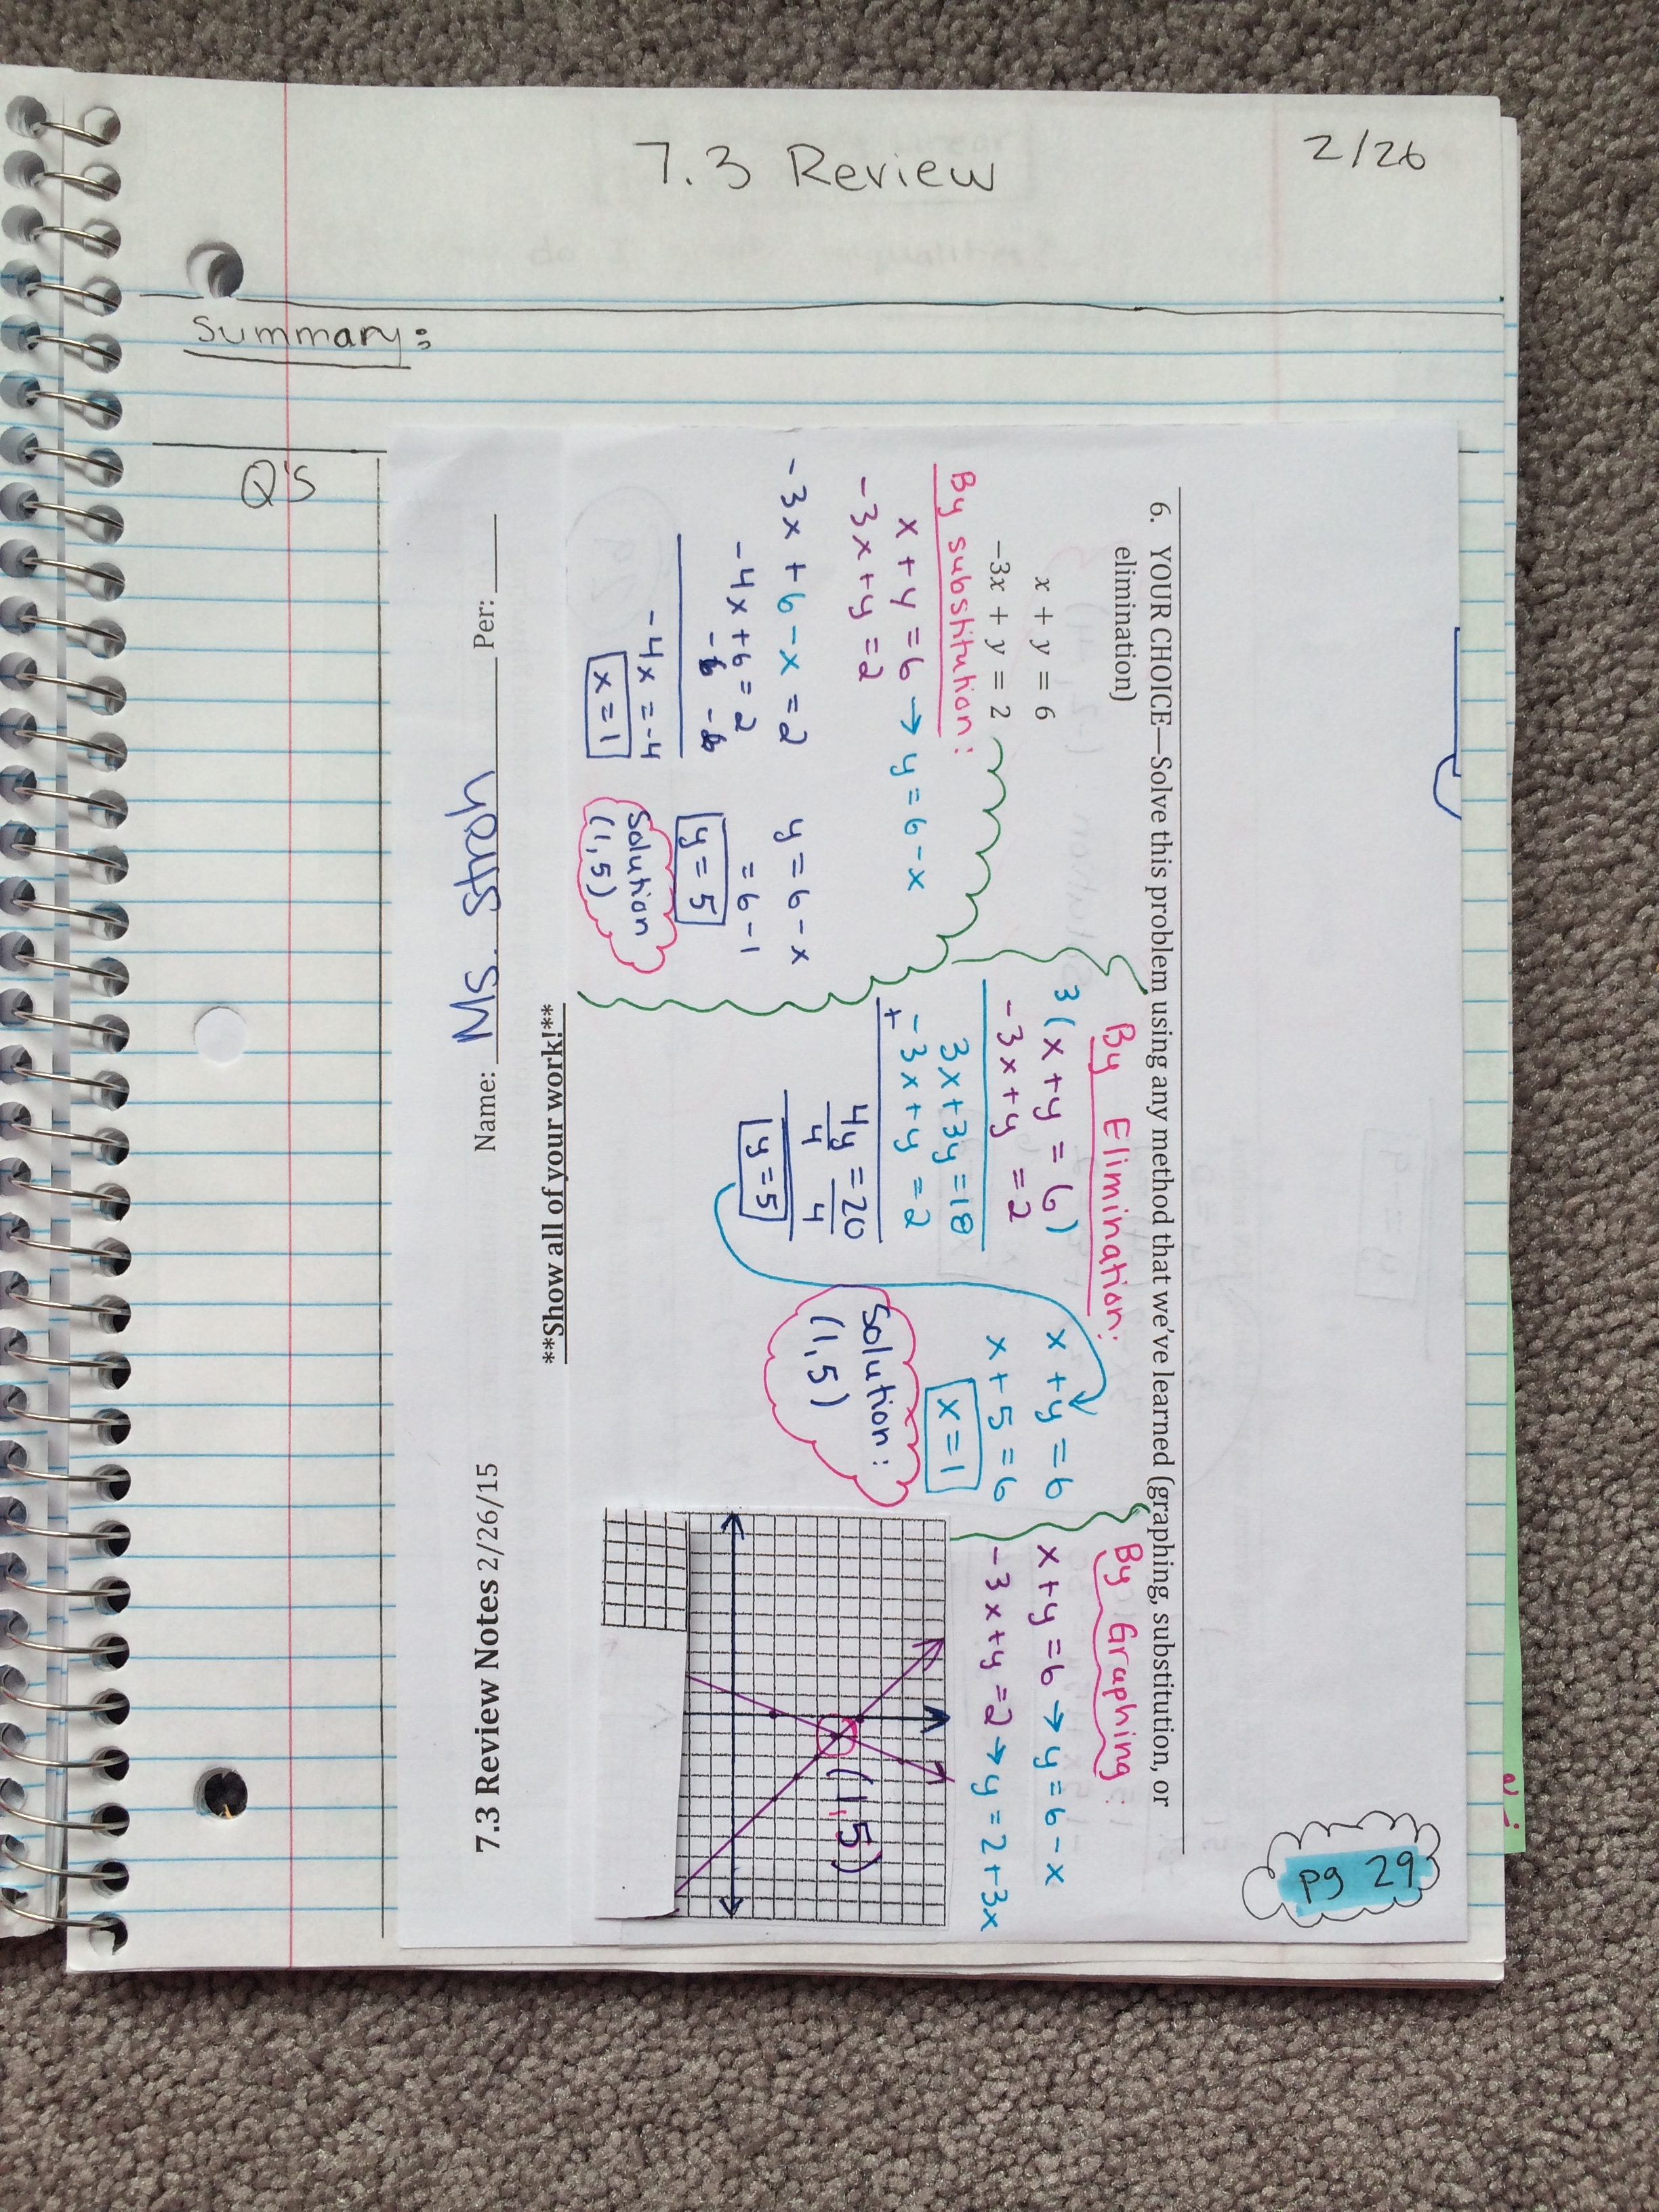 2/26
7.3 Review
Summary:
Q's
pg 29
6. YOUR CHOICE—Solve this problem using any method that we've learned (graphing, substitution, or
elimination)
x + y = 6
−3x + y = 2
By substitution:
x + y = 6 → y = 6 - x
-3x + y = 2
-3x + 6 - x = 2
-4x + 6 = 2
-6 -6
-4x = -4
x = 1
y = 6 - x
= 6 - 1
y = 5
Solution
(1, 5)
By Elimination:
3(x + y = 6)
-3x + y = 2
3x + 3y = 18
+ -3x + y = 2
4y = 20
4 4
y = 5
x + y = 6
x + 5 = 6
x = 1
Solution:
(1, 5)
By Graphing:
x + y = 6 → y = 6 - x
-3x + y = 2 → y = 2 + 3x
(1, 5)
**Show all of your work!**
Name: Ms. Stroh Per:
7.3 Review Notes 2/26/15